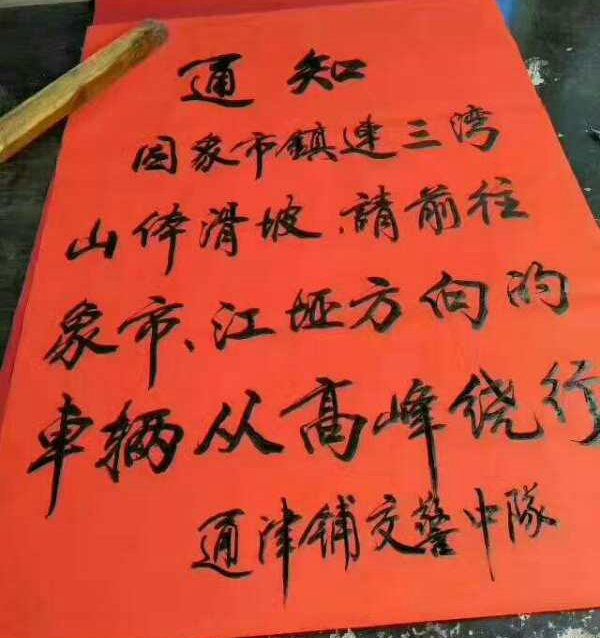 通知
因象市鎮連三湾
山体滑坡、請前往
象市、江垭方向的
車辆从高峰绕行
通津铺交警中隊